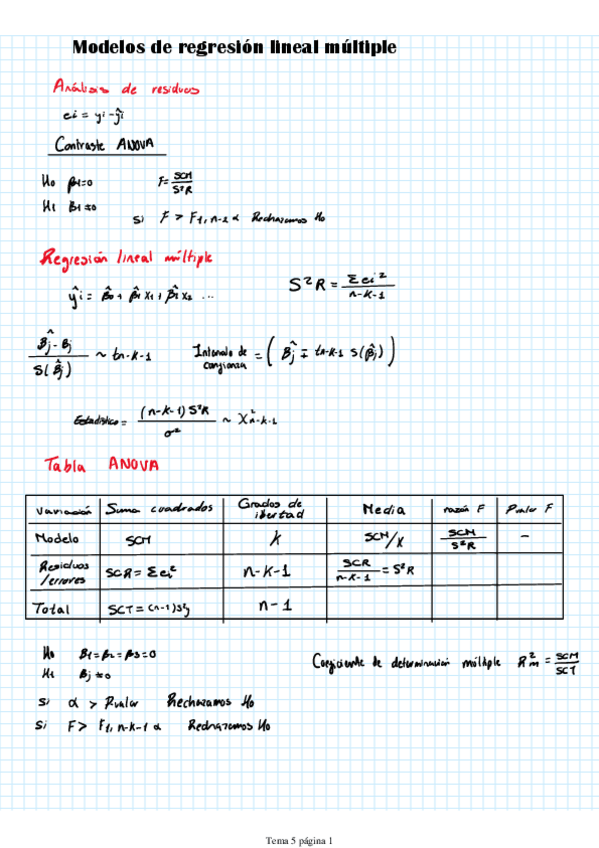 Modelos de regresión lineal múltiple
Análisis de residuos
ei = yi - ŷi
Contraste ANOVA
Ho β1=0 F= SCM / S²R
H1 β1≠0
Si F > F1, n-2 α Rechazamos Ho
Regresión lineal múltiple
ŷi = β̂0 + β̂1 X1 + β̂2 X2 ... S²R = Σei² / n-k-1
β̂j - βj / S(β̂j) ~ tn-k-1 Intervalo de confianza = ( β̂j ∓ tn-k-1 S(β̂j) )
Estadístico = (n-k-1) S²R / σ² ~ X²n-k-1
Tabla ANOVA
Variación Suma cuadrados Grados de libertad Media razón F Pvalor F
Modelo SCM k SCM/K SCM / S²R -
Residuos /errores SCR = Σei² n-k-1 SCR / n-k-1 = S²R
Total SCT = (n-1)S²y n-1
Ho β1=β2=β3=0 Coeficiente de determinación múltiple R²m = SCM / SCT
H1 βj≠0
Si α > Pvalor Rechazamos Ho
Si F > F1, n-k-1 α Rechazamos Ho
Tema 5 página 1